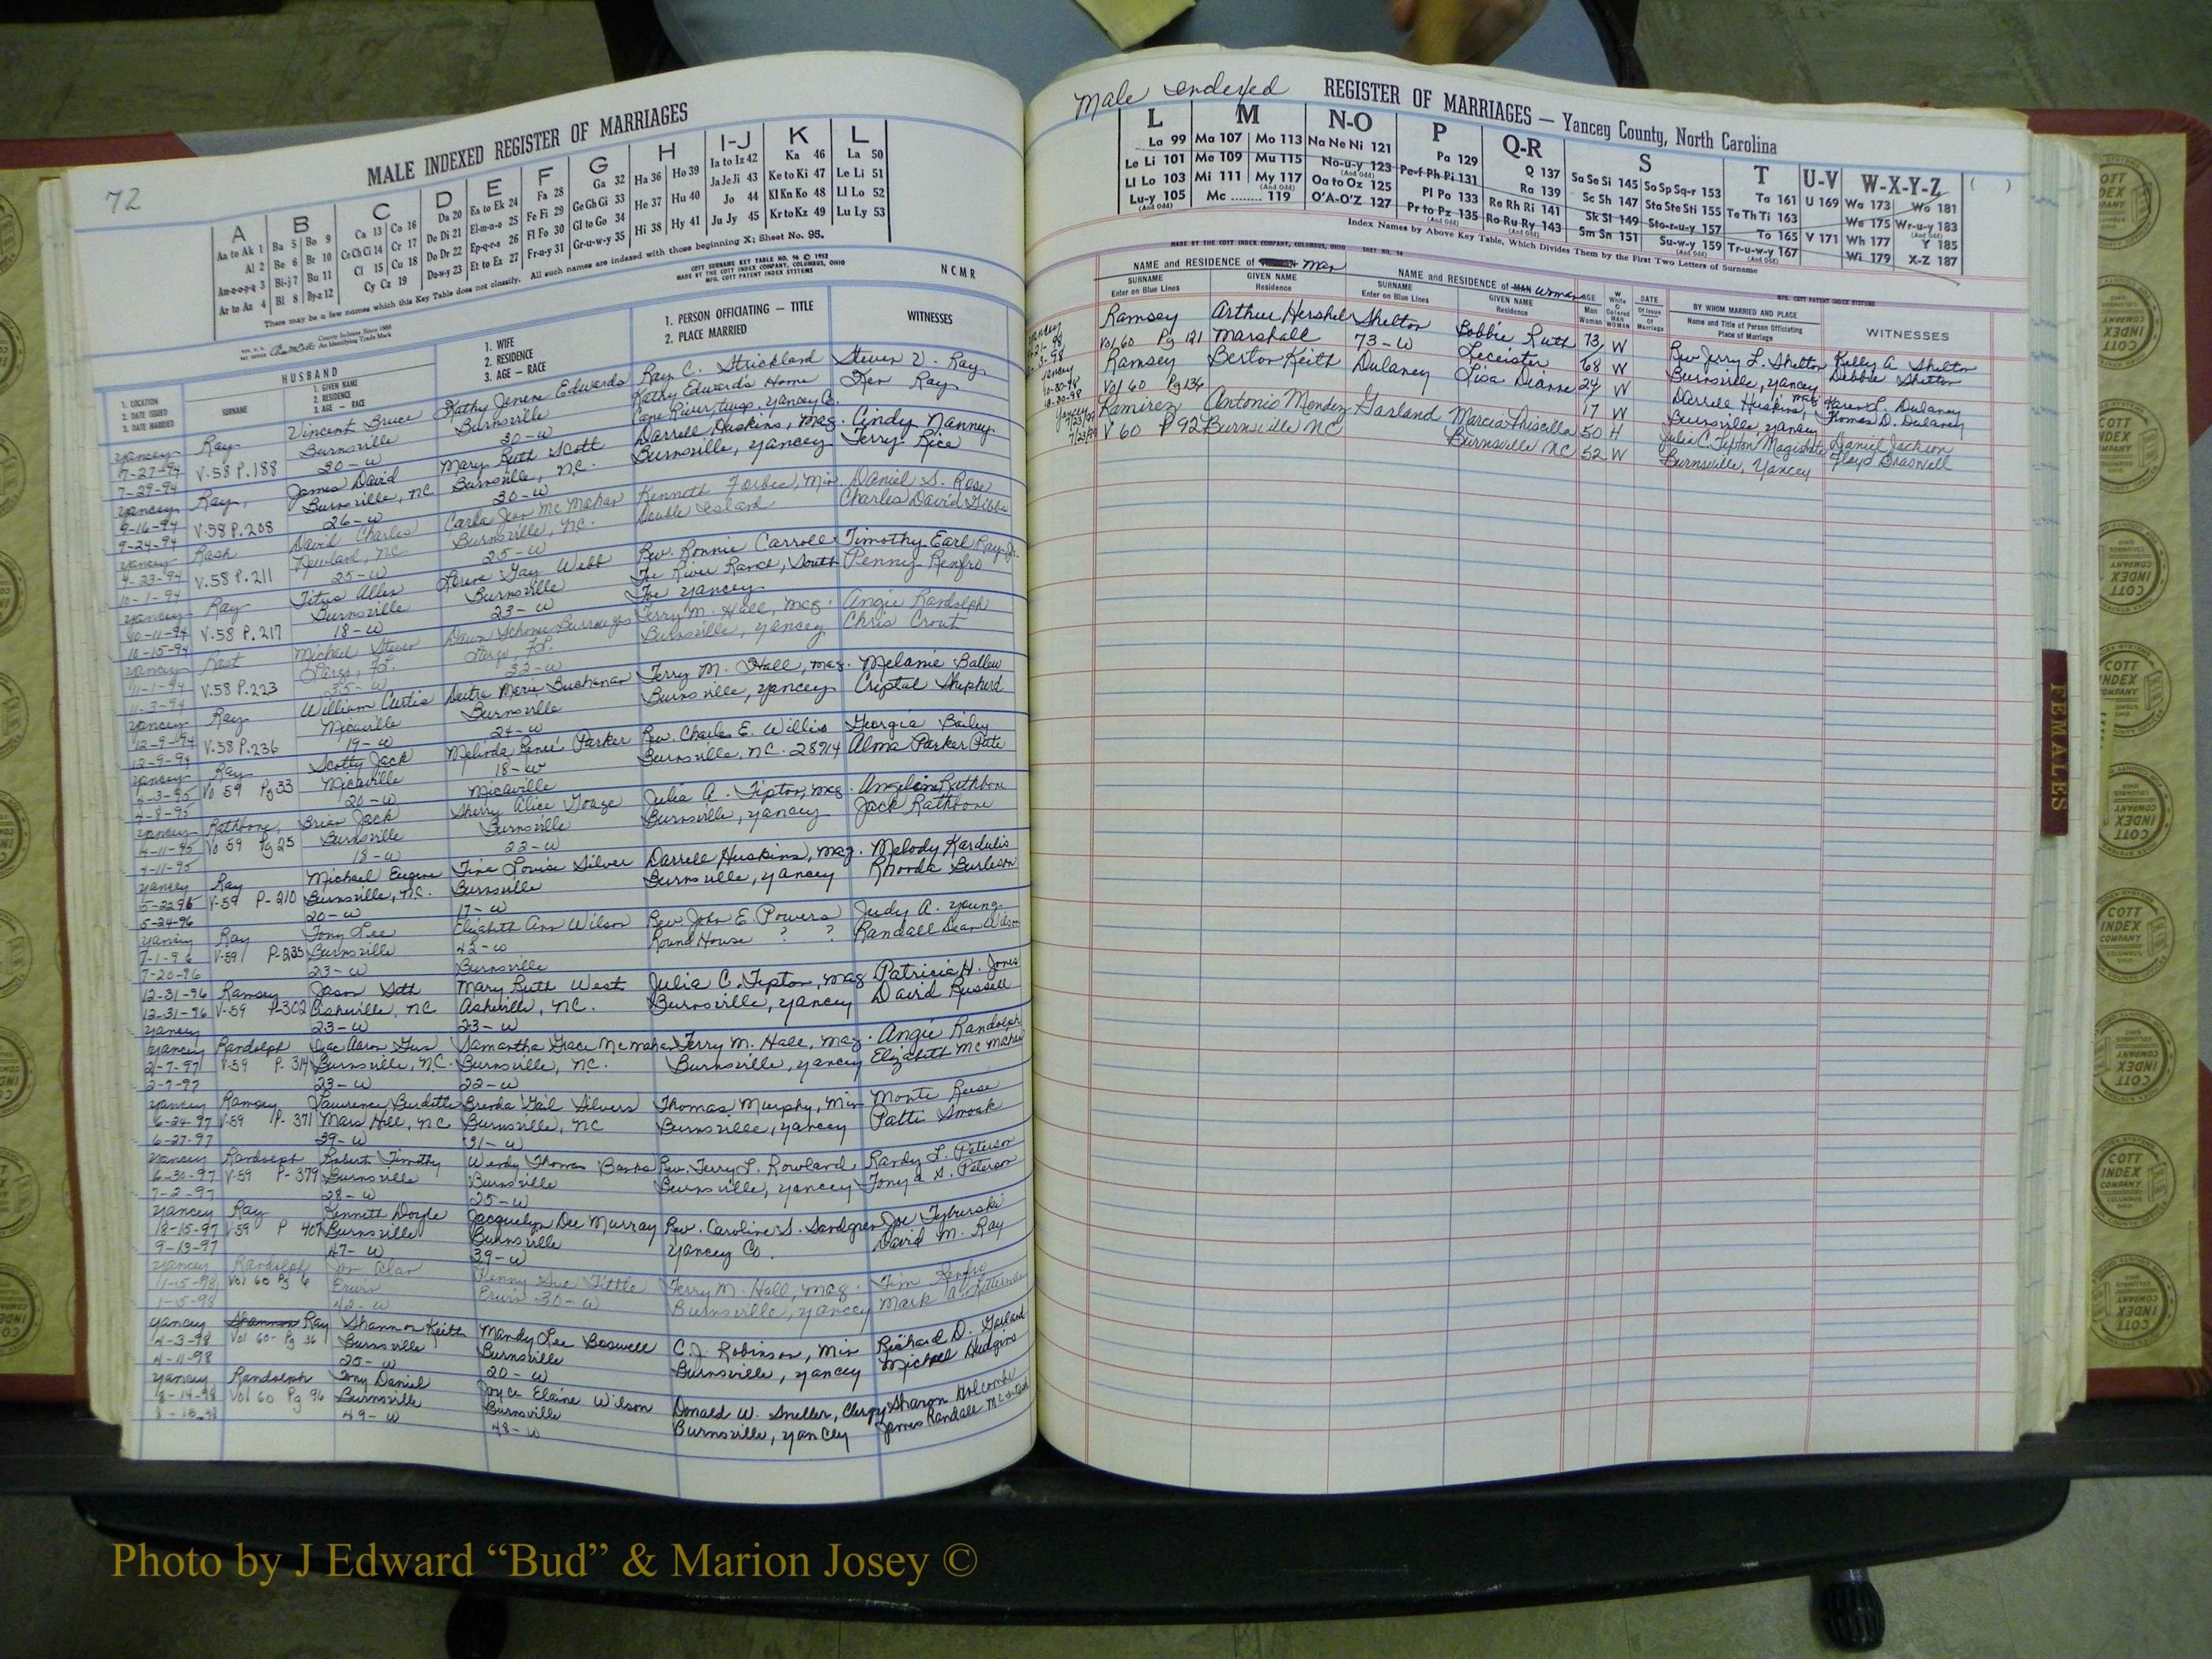 72
MALE INDEXED REGISTER OF MARRIAGES
A B C D E F G H I-J K L
Aa to Ak 1 Ba 5 Bo 9 Ca 13 Co 16 Da 20 Ea to Ek 24 Fa 28 Ga 32 Ha 36 Ho 39 Ia to Iz 42 Ka 46 La 50
Al 2 Be 6 Br 10 Ce Ch Ci 14 Cr 17 De Di 21 El-m-n-o 25 Fe Fi 29 Ge Gh Gi 33 He 37 Hu 40 Ja Je Ji 43 Ke to Ki 47 Le Li 51
Am-n-o-p-q 3 Bi-j 7 Bu 11 Cl 15 Cu 18 Do Dr 22 Ep-q-r-s 26 Fl Fo 30 Gl to Go 34 Hi 38 Hy 41 Jo 44 Kl Kn Ko 48 Ll Lo 52
Ar to Az 4 Bl 8 By-z 12 Cy Cz 19 Du-w-y 23 Et to Ez 27 Fr-u-y 31 Gr-u-w-y 35 Ju Jy 45 Kr to Kz 49 Lu Ly 53
There may be a few names which this Key Table does not classify. All such names are indexed with those beginning X; Sheet No. 95.
COTT SURNAME KEY TABLE NO. 96 © 1952
MADE BY THE COTT INDEX COMPANY, COLUMBUS, OHIO
MFG. COTT PATENT INDEX SYSTEMS
NCMR
County Indexes Since 1888
An Identifying Trade Mark
1. LOCATION
2. DATE ISSUED
3. DATE MARRIED
HUSBAND
SURNAME
1. GIVEN NAME
2. RESIDENCE
3. AGE — RACE
1. WIFE
2. RESIDENCE
3. AGE — RACE
1. PERSON OFFICIATING — TITLE
2. PLACE MARRIED
WITNESSES
Yancey Ray Vincent Bruce Kathy Jenene Edwards Ray C. Strickland Steven V. Ray
7-27-94 V.58 P.188 Burnsville Burnsville Kathy Edward's Home Ken Ray
7-29-94 30-W 30-W Cane River, twsp. Yancey Co.
Yancey Ray, James David Mary Ruth Scott Darrell Huskins, Mag. Cindy Nanney
9-16-94 V.58 P.208 Burnsville, NC. Burnsville, NC. Burnsville, Yancey Terry Rice
9-24-94 26-W 30-W
Yancey Rash David Charles Carla Jean McMahan Kenneth Forbes, Min. Daniel S. Rose
9-23-94 V.58 P.211 Newland, NC. Burnsville, NC. Double Island Charles David Gibbs
10-1-94 25-W 25-W
Yancey Ray Titus Allen Lorene Gay Webb Rev. Ronnie Carroll Timothy Earl Ray, Jr.
10-11-94 V.58 P.217 Burnsville Burnsville Toe River Ranch, South Penny Renfro
10-15-94 18-W 23-W Toe Yancey
Yancey Rast Michael Steven Dawn Burroughs Terry M. Hall, Mag. Angie Randolph
11-1-94 V.58 P.223 Largo, FL. Largo, FL. Burnsville, Yancey Chris Crout
11-3-94 35-W 32-W
Yancey Ray William Curtis Deitra Marie Buchanan Terry M. Hall, Mag. Melanie Ballew
12-9-94 V.58 P.236 Micaville Burnsville Burnsville, Yancey Criptal Shepherd
12-9-94 19-W 24-W
Yancey Ray Scotty Jack Melinda Reneé Parker Rev. Charles E. Willis Georgia Bailey
4-3-95 Vo 59 Pg 33 Micaville 18-W Burnsville, NC. 28714 Alma Parker Pate
4-8-95 20-W Micaville
Yancey Rathbone, Brian Jack Sherry Alice Gouge Julia A. Tipton, Mag. Angeline Rathbone
4-11-95 Vo 59 Pg 25 Burnsville Burnsville Burnsville, Yancey Jack Rathbone
4-11-95 18-W 22-W
Yancey Ray Michael Eugene Tina Louise Silver Darrell Huskins, Mag. Melody Kardulis
5-22-96 V-59 P-210 Burnsville, N.C. Burnsville Burnsville, Yancey Rhonda Burleson
5-24-96 20-W 17-W
Yancey Ray Tony Lee Elizabeth Ann Wilson Rev. John E. Powers Judy A. Young
7-1-96 V-59 P-235 Burnsville 42-W Round House ? ? Randall Dean Wilson
7-20-96 23-W Burnsville
12-31-96 Ramsey Jason Seth Mary Ruth West Julia C. Tipton, Mag Patricia H. Jones
12-31-96 V-59 P-302 Asheville, NC Asheville, NC. Burnsville, Yancey David Russell
Yancey 23-W 23-W
Yancey Randolph Aaron Samantha Grace McMahan Terry M. Hall, Mag. Angie Randolph
2-7-97 V-59 P. 314 Burnsville, N.C. Burnsville, NC. Burnsville, Yancey Elizabeth McMahan
2-7-97 23-W 22-W
Yancey Ramsey Lawrence Burdette Brenda Gail Silvers Thomas Murphy, Min Monte Reese
6-24-97 V-59 P. 371 Mars Hill, NC Burnsville, NC Burnsville, Yancey Patti Smoak
6-27-97 39-W 31-W
Yancey Randolph Robert Timothy Wendy Thomas Banks Rev. Terry L. Rowland Randy L. Peterson
6-30-97 V-59 P-379 Burnsville Burnsville Burnsville, Yancey Tonya S. Peterson
7-2-97 28-W 25-W
Yancey Ray Kenneth Doyle Jacquelyn Dee Murray Rev. Caroline S. Sandgren Joe Tyburski
8-15-97 V-59 P 407 Burnsville Burnsville Yancey Co. David M. Ray
9-13-97 47-W 39-W
Yancey Randolph Jon Alan Penny Sue Tittle Terry M. Hall, Mag. Tim Renfro
1-15-98 Vol 60 Pg 6 Erwin Erwin 30-W Burnsville, Yancey Mark A.
1-15-98 42-W
Yancey Shannon Ray Shannon Keith Mandy Lee Boswell C.J. Robinson, Min Richard D. Garland
4-3-98 Vol 60- Pg 36 Burnsville Burnsville Burnsville, Yancey Michael Hudgins
4-11-98 20-W 20-W
Yancey Randolph Tony Daniel Joyce Elaine Wilson Donald W. Sneller, Clergy Sharon Holcombe
8-14-98 Vol 60 Pg 96 Burnsville Burnsville Burnsville, Yancey James Randall
49-W 48-W
Male indexed REGISTER OF MARRIAGES — Yancey County, North Carolina
L M N-O P Q-R S T U-V W-X-Y-Z ( )
La 99 Ma 107 Mo 113 Na Ne Ni 121 Pa 129 Q 137 Sa Se Si 145 So Sp Sq-r 153 Ta 161 U 169 Wa 173 Wo 181
Le Li 101 Me 109 Mu 115 No-u-y 123 Pe-f Ph Pi 131 Ra 139 Sc Sh 147 Sta Ste Sti 155 Te Th Ti 163 We 175 Wr-u-y 183
Ll Lo 103 Mi 111 My 117 Oa to Oz 125 Pl Po 133 Re Rh Ri 141 Sk Sl 149 Sto-r-u-y 157 To 165 V 171 Wh 177 Y 185
Lu-y 105 Mc 119 O'A-O'Z 127 Pr to Pz 135 Ro Ru Ry 143 Sm Sn 151 Su-w-y 159 Tr-u-w-y 167 Wi 179 X-Z 187
Index Names by Above Key Table, Which Divides Them by the First Two Letters of Surname
MADE BY THE COTT INDEX COMPANY, COLUMBUS, OHIO
MFG. COTT PATENT INDEX SYSTEMS
NAME and RESIDENCE of Man NAME and RESIDENCE of MAN Woman AGE DATE BY WHOM MARRIED AND PLACE WITNESSES
SURNAME
Enter on Blue Lines
GIVEN NAME
Residence
SURNAME
Enter on Blue Lines
GIVEN NAME
Residence
Man
Woman
W
White
C
Colored
MAN
WOMAN
Of Issue
Of
Marriage
Name and Title of Person Officiating
Place of Marriage
Yancey Ramsey Arthur Hershel Shelton Bobbie Ruth 73 W Rev Jerry L. Shelton Kelly A. Shelton
Vol 60 Pg 121 Marshall 73-W Leceister 68 W Burnsville, Yancey Debbie Shelton
Yancey Ramsey Berton Keith Dulaney Lisa Dianne 24 W Darrell Huskins, Mag Karen L. Dulaney
10-30-98 Vol 60 Pg 134 17 W Burnsville Yancey Thomas D. Dulaney
Yancey Ramirez Antonio Mendez Garland Marcia Priscilla 50 H Julia C. Tipton Magistrate Daniel Jackson
V 60 P 92 Burnsville NC Burnsville NC 52 W Burnsville, Yancey Floyd Braswell
FEMALES
COTT INDEX COMPANY
Photo by J Edward “Bud” & Marion Josey ©